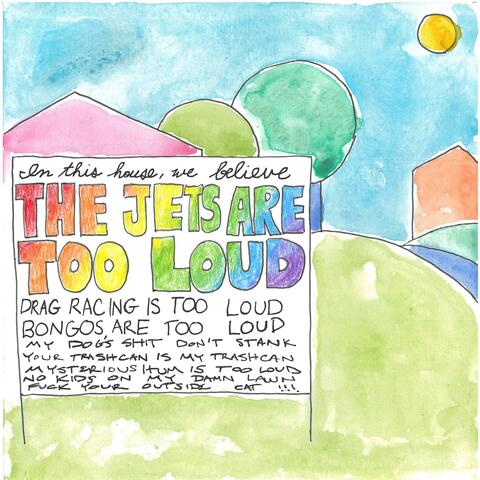 In this house, we believe
THE JETS ARE
TOO LOUD
DRAG RACING IS TOO LOUD
BONGOS, ARE TOO LOUD
MY DOG'S SHIT DON'T STANK
YOUR TRASHCAN IS MY TRASHCAN
MYSTERIOUS HUM IS TOO LOUD
NO KIDS ON MY DAMN LAWN
FUCK YOUR OUTSIDE CAT !!!!